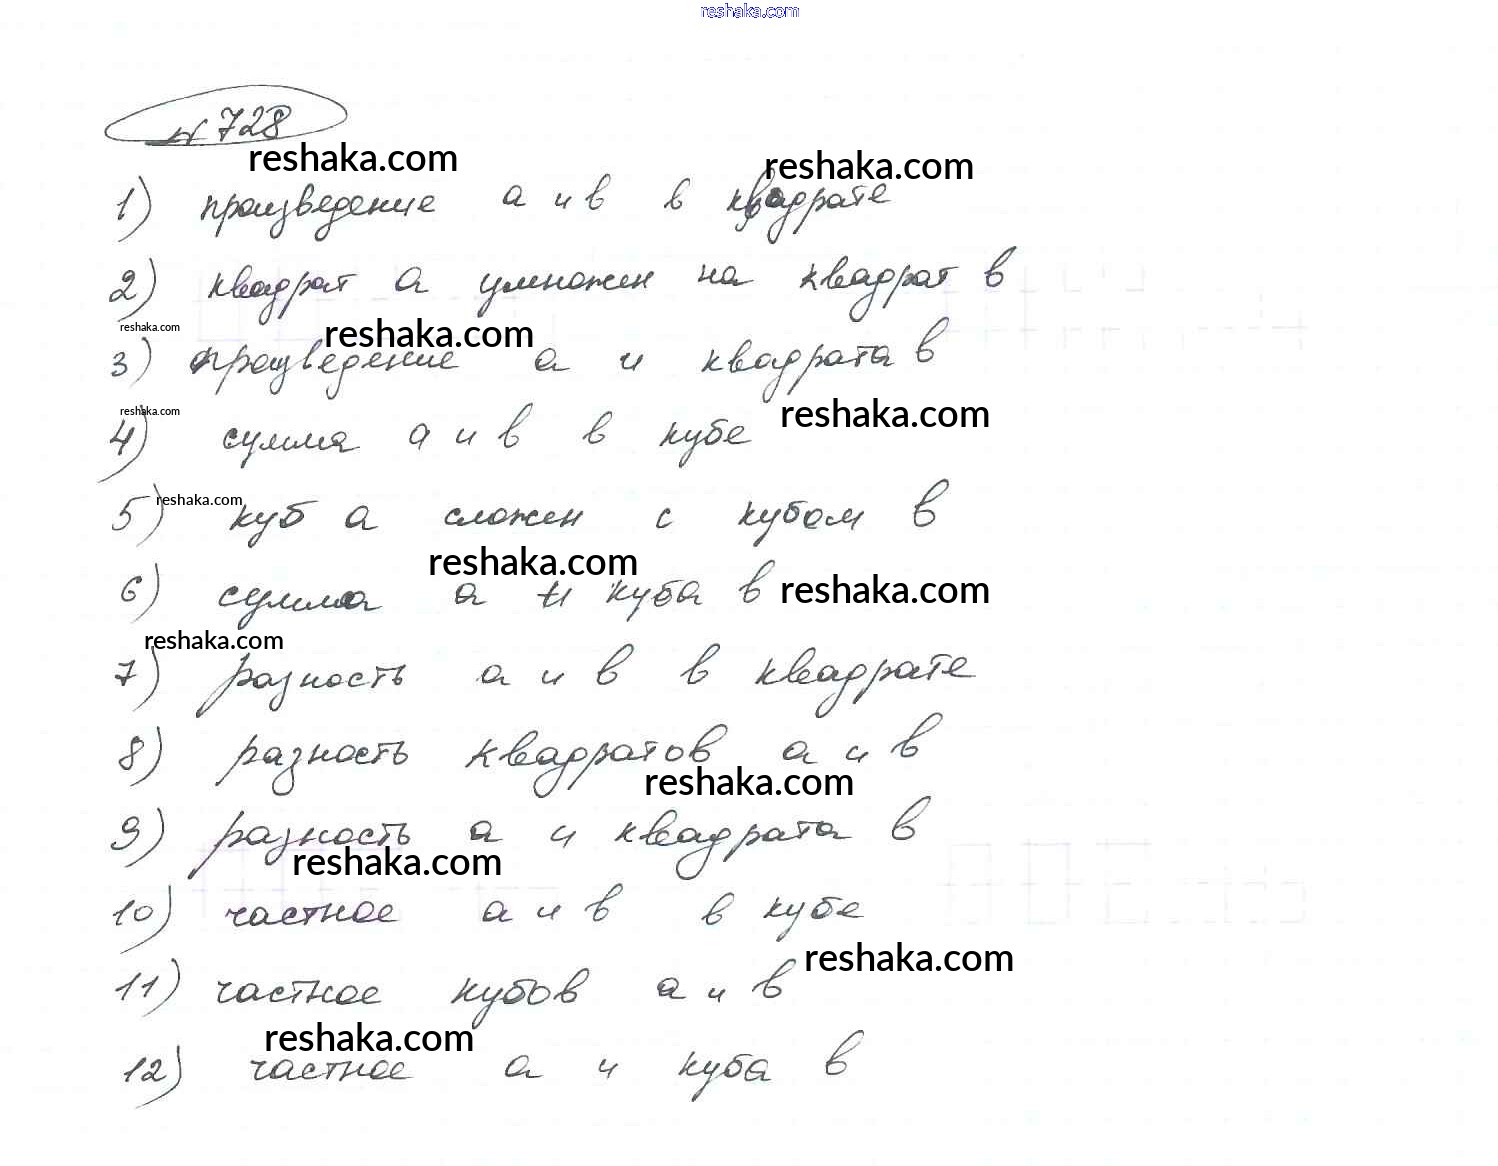 reshaka.com
№ 728
reshaka.com
reshaka.com
1) произведение a и b в квадрате
2) квадрат a умножен на квадрат b
reshaka.com
reshaka.com
3) произведение a и квадрата b
reshaka.com
reshaka.com
4) сумма a и b в кубе
reshaka.com
5) куб a сложен с кубом b
reshaka.com
reshaka.com
6) сумма a и куба b
reshaka.com
7) разность a и b в квадрате
8) разность квадратов a и b
reshaka.com
9) разность a и квадрата b
reshaka.com
10) частное a и b в кубе
reshaka.com
11) частное кубов a и b
reshaka.com
12) частное a и куба b